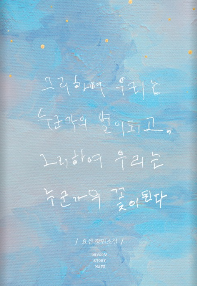 그리하여 우리는
누군가의 별이되고,
그리하여 우리는
누군가의 꽃이된다